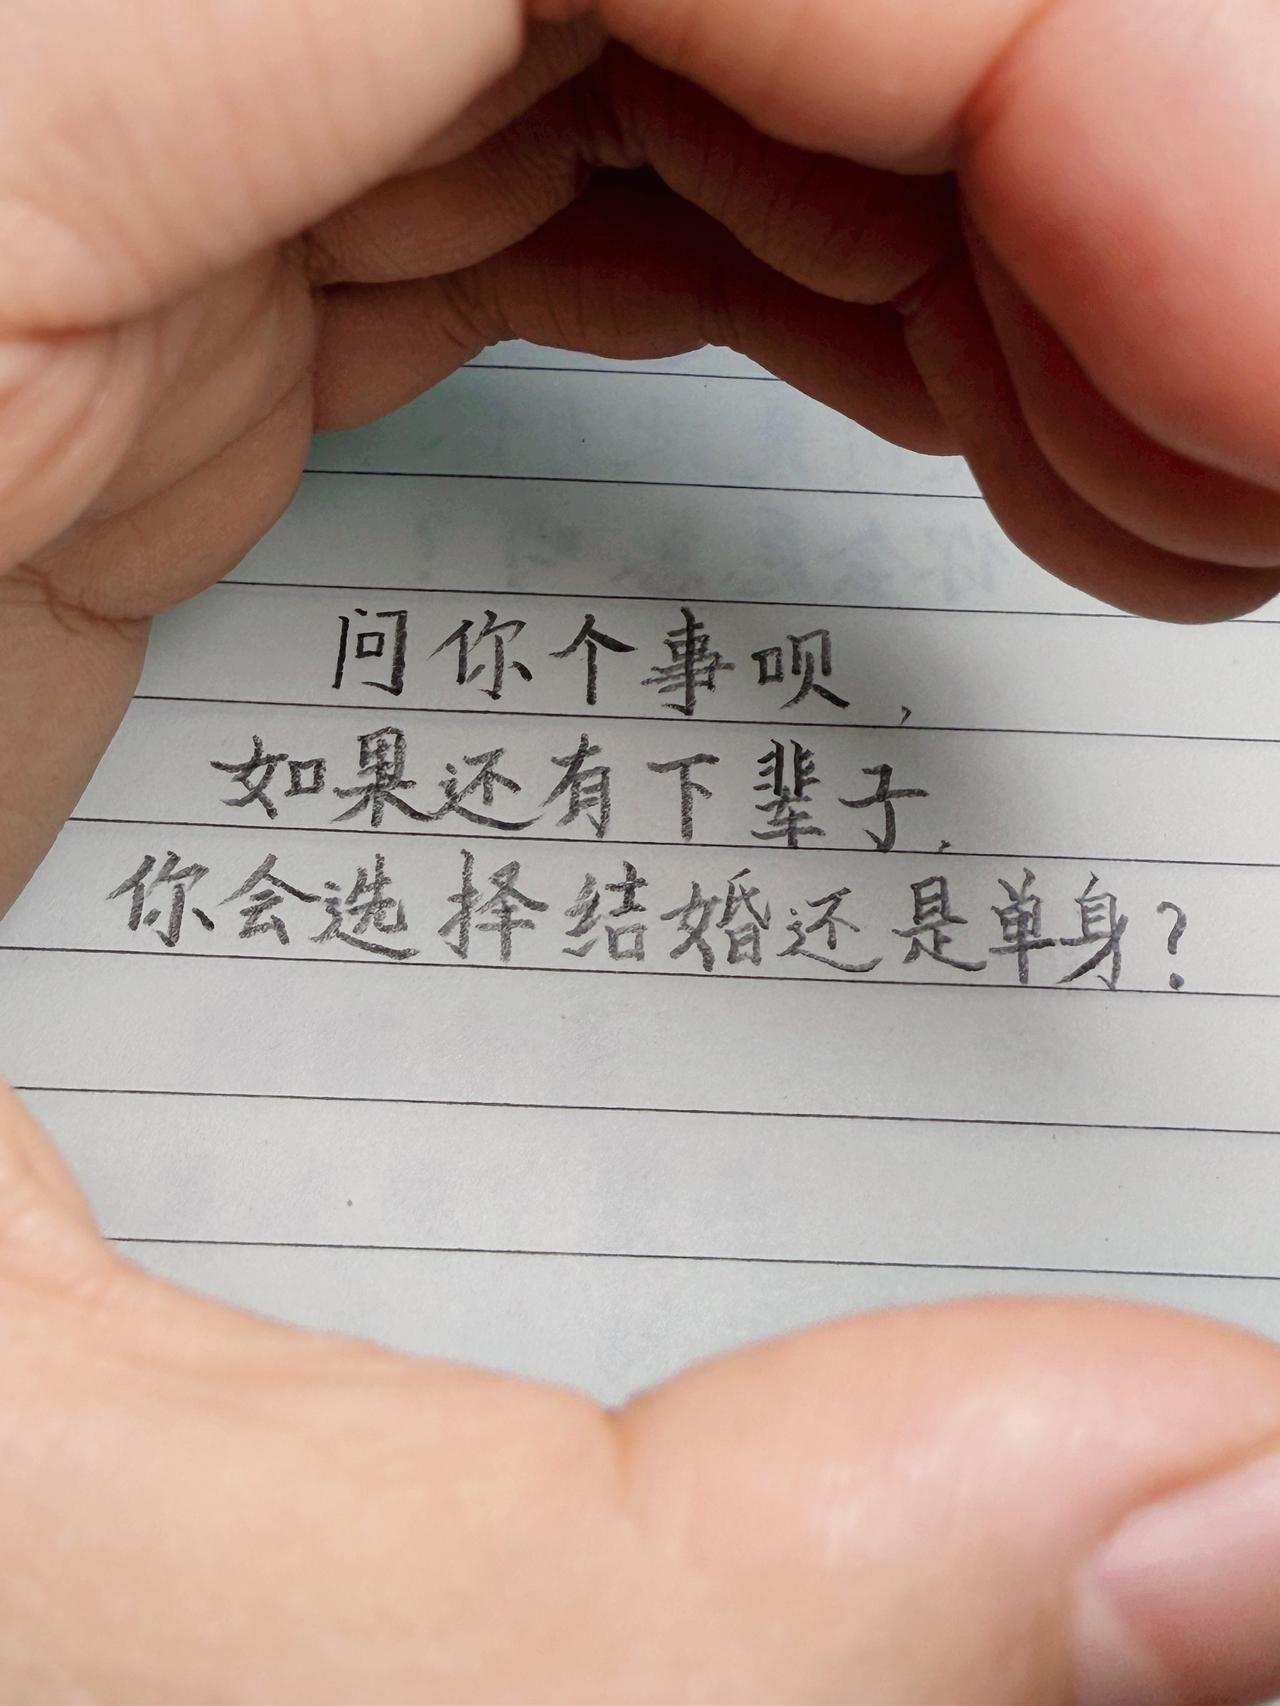 问你个事呗，
如果还有下辈子，
你会选择结婚还是单身？